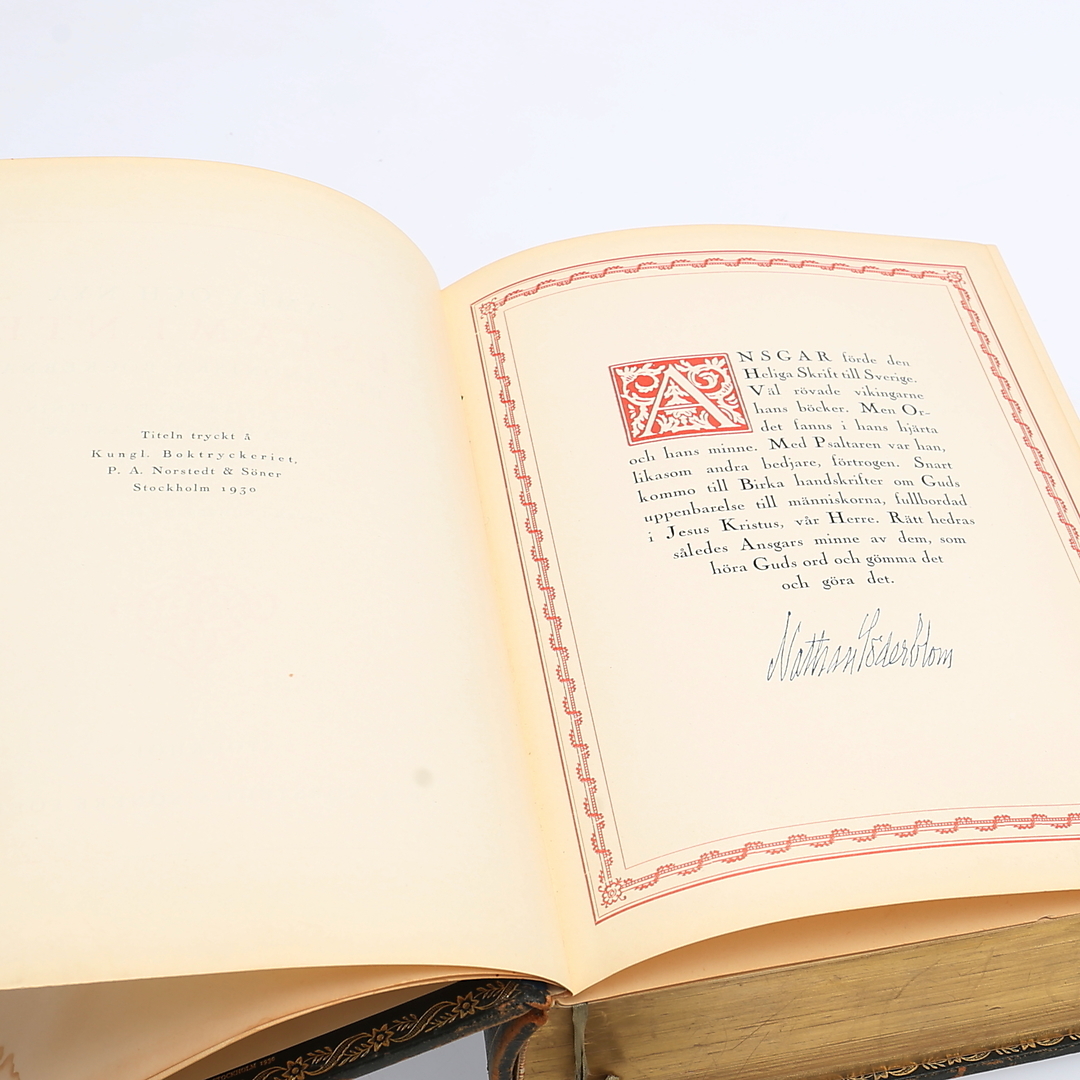 Titeln tryckt å
Kungl. Boktryckeriet,
P. A. Norstedt & Söner
Stockholm 1930
ANSGAR förde den
Heliga Skrift till Sverige.
Väl rövade vikingarne
hans böcker. Men Or-
det fanns i hans hjärta
och hans minne. Med Psaltaren var han,
likasom andra bedjare, förtrogen. Snart
kommo till Birka handskrifter om Guds
uppenbarelse till människorna, fullbordad
i Jesus Kristus, vår Herre. Rätt hedras
således Ansgars minne av dem, som
höra Guds ord och gömma det
och göra det.
Nathan Söderblom